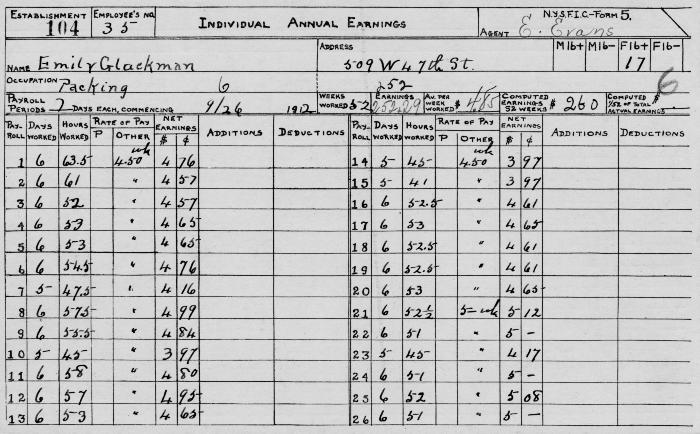 ESTABLISHMENT 104 EMPLOYEE'S NO. 35 INDIVIDUAL ANNUAL EARNINGS N.Y.S.F.I.C.-FORM 5. AGENT E. Evans
NAME Emily Glackman ADDRESS 509 W 47th St. M1b+ M1b- F1b+ F1b-
17
OCCUPATION Packing 6 252 6
PAYROLL PERIODS 7 DAYS EACH, COMMENCING 9/26 1912 WEEKS WORKED 52 EARNINGS 252.29 AV. PER WEEK WORKED $ 4.85 COMPUTED EARNINGS 52 WEEKS $ 260 COMPUTED 1/52 OF TOTAL ACTUAL EARNINGS
PAY-ROLL DAYS WORKED HOURS WORKED RATE OF PAY P OTHER NET EARNINGS $ ¢ ADDITIONS DEDUCTIONS PAY-ROLL DAYS WORKED HOURS WORKED RATE OF PAY P OTHER NET EARNINGS $ ¢ ADDITIONS DEDUCTIONS
1 6 63.5 4.50 wk 4 76 14 5 45 4.50 wk 3 97
2 6 61 " 4 57 15 5 41 " 3 97
3 6 52 " 4 57 16 6 52.5 " 4 61
4 6 53 " 4 65 17 6 53 " 4 65
5 6 53 " 4 65 18 6 52.5 " 4 61
6 6 54.5 " 4 76 19 6 52.5 " 4 61
7 5 47.5 " 4 16 20 6 53 " 4 65
8 6 57.5 " 4 99 21 6 52 1/2 5- wk 5 12
9 6 55.5 " 4 84 22 6 51 " 5 -
10 5 45 " 3 97 23 5 45 " 4 17
11 6 58 " 4 80 24 6 51 " 5 -
12 6 57 " 4 95 25 6 52 " 5 08
13 6 53 " 4 65 26 6 51 " 5 -